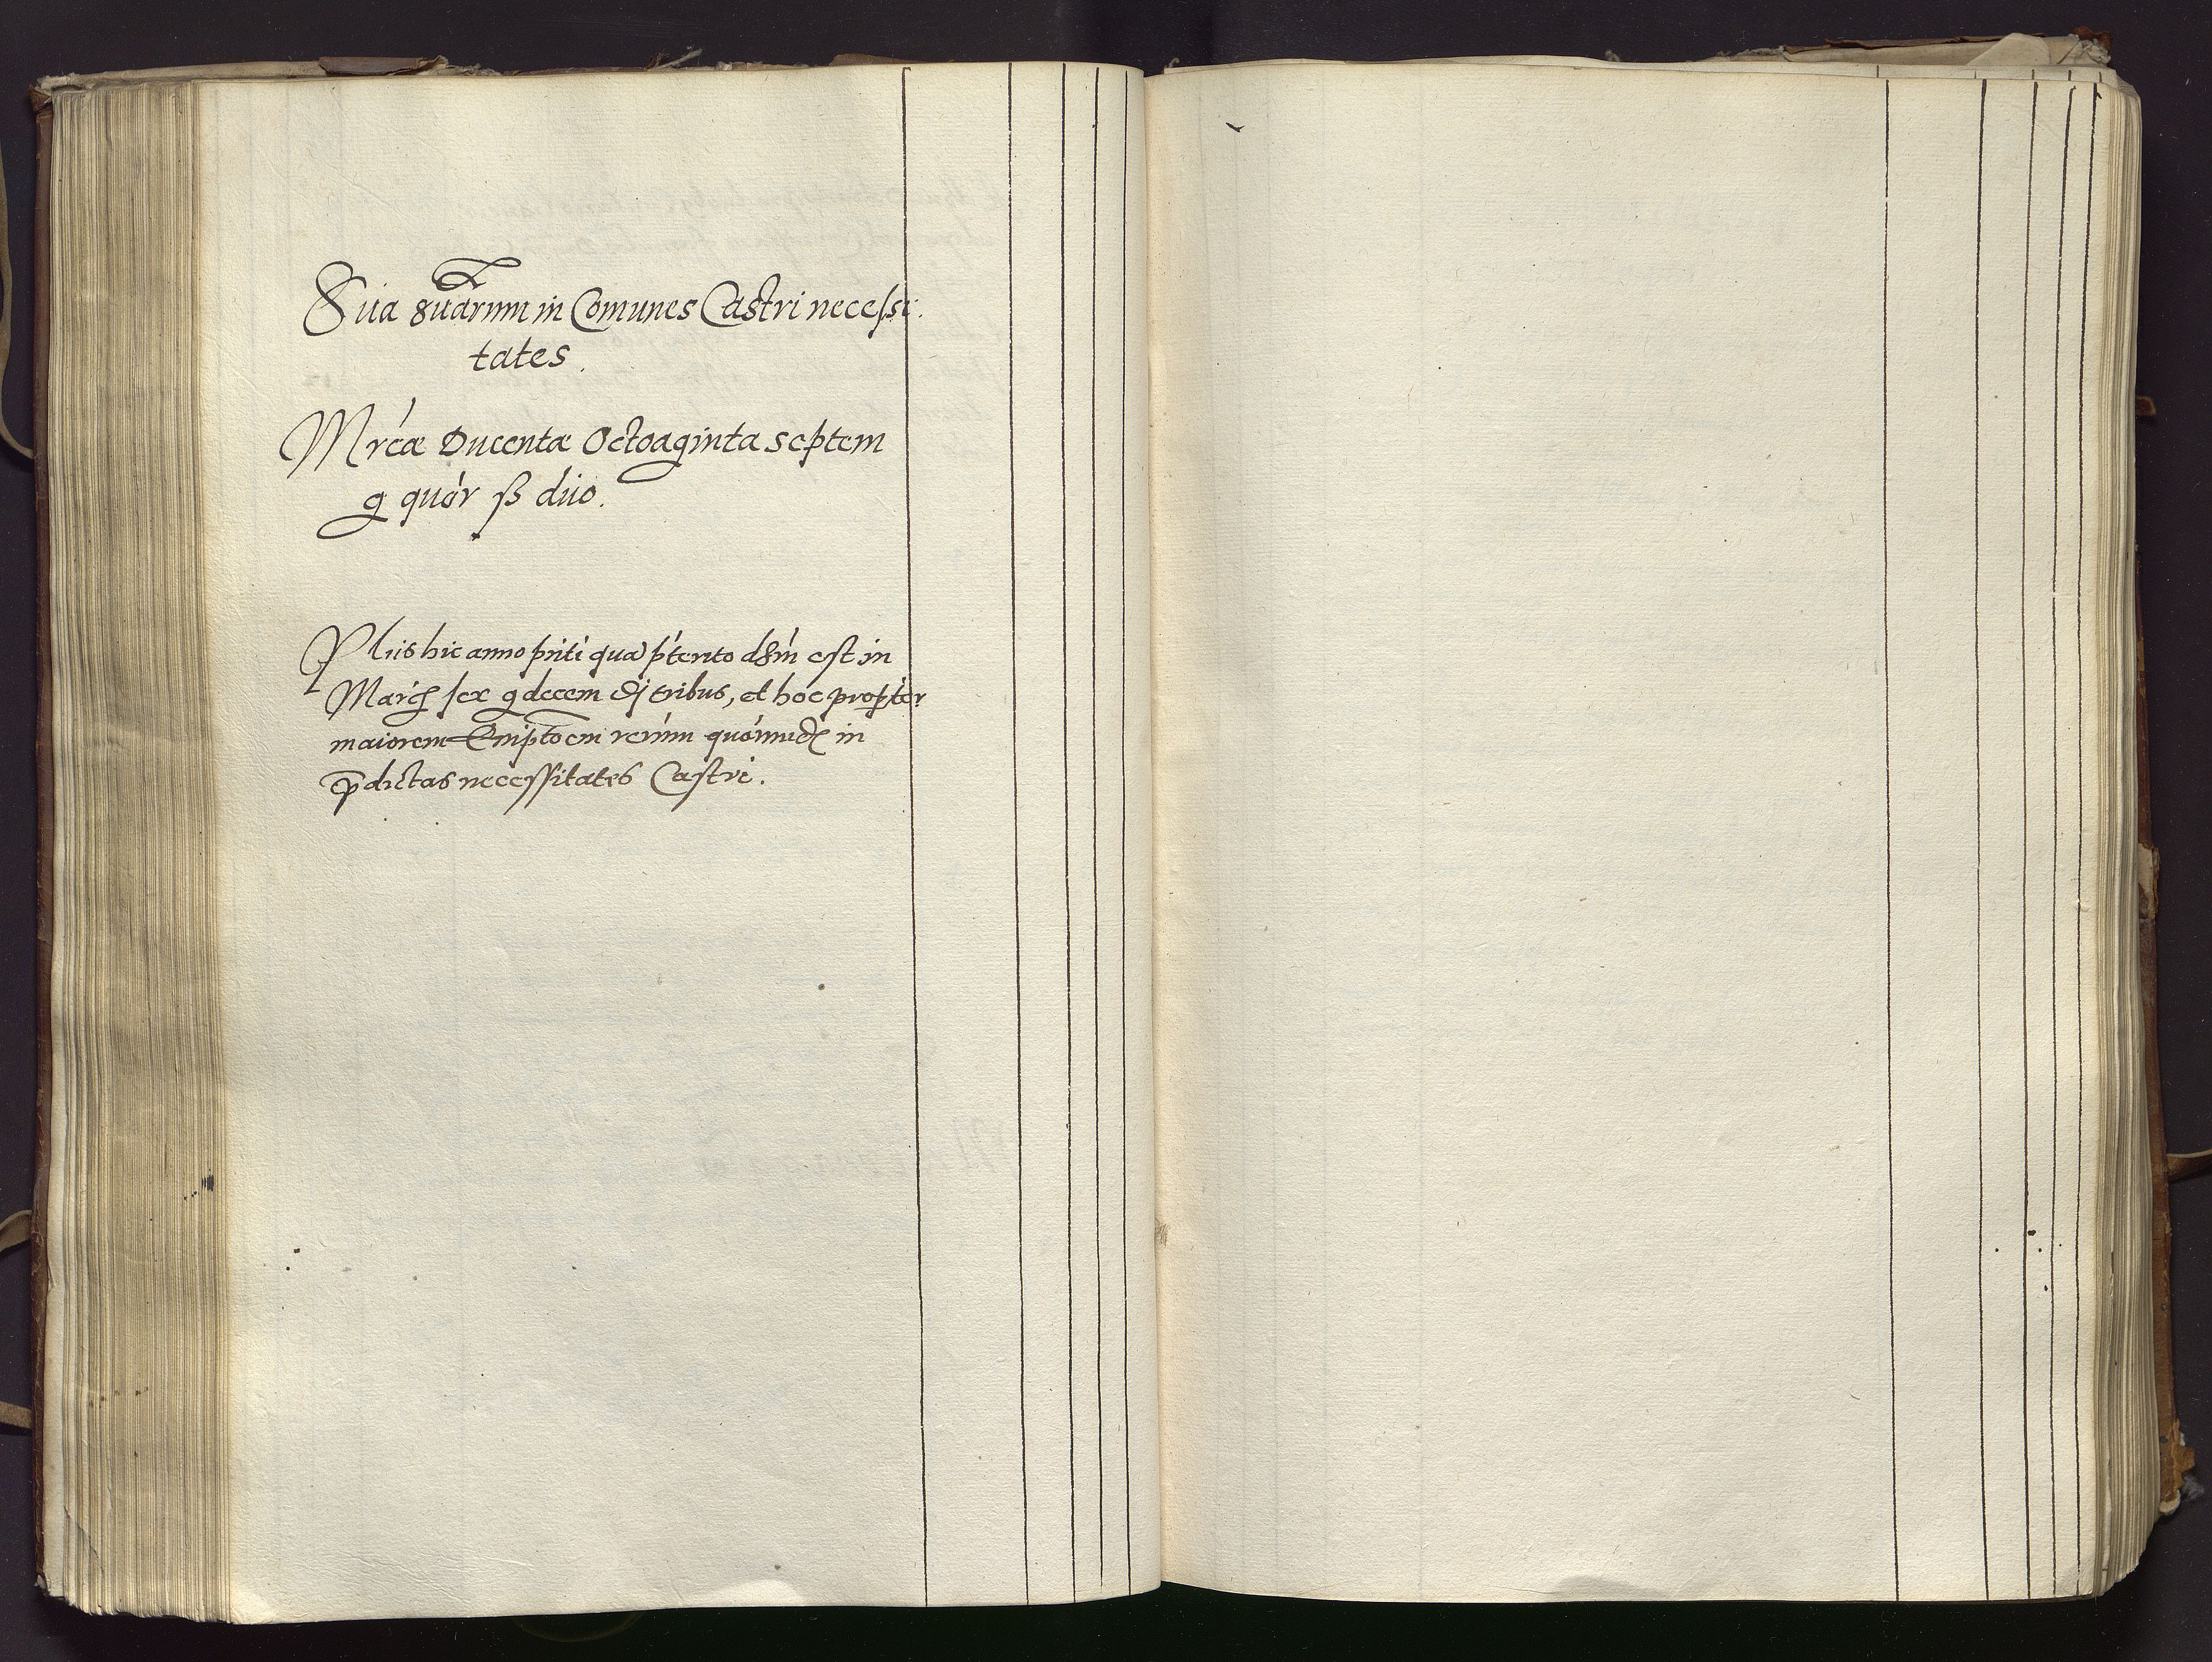 Sūa suārum in Comunes Castri necessi:
tates.
Mrcæ Ducentæ Octoaginta septem
g quór ß duo.
Plus hic anno pñti qua p̃terito dist̃ est in
Marc̃ sex g decem ß tribus, et hoc propter
maiorem Emptõem rerum quarumdã in
p̃dictas necessitates Castri.